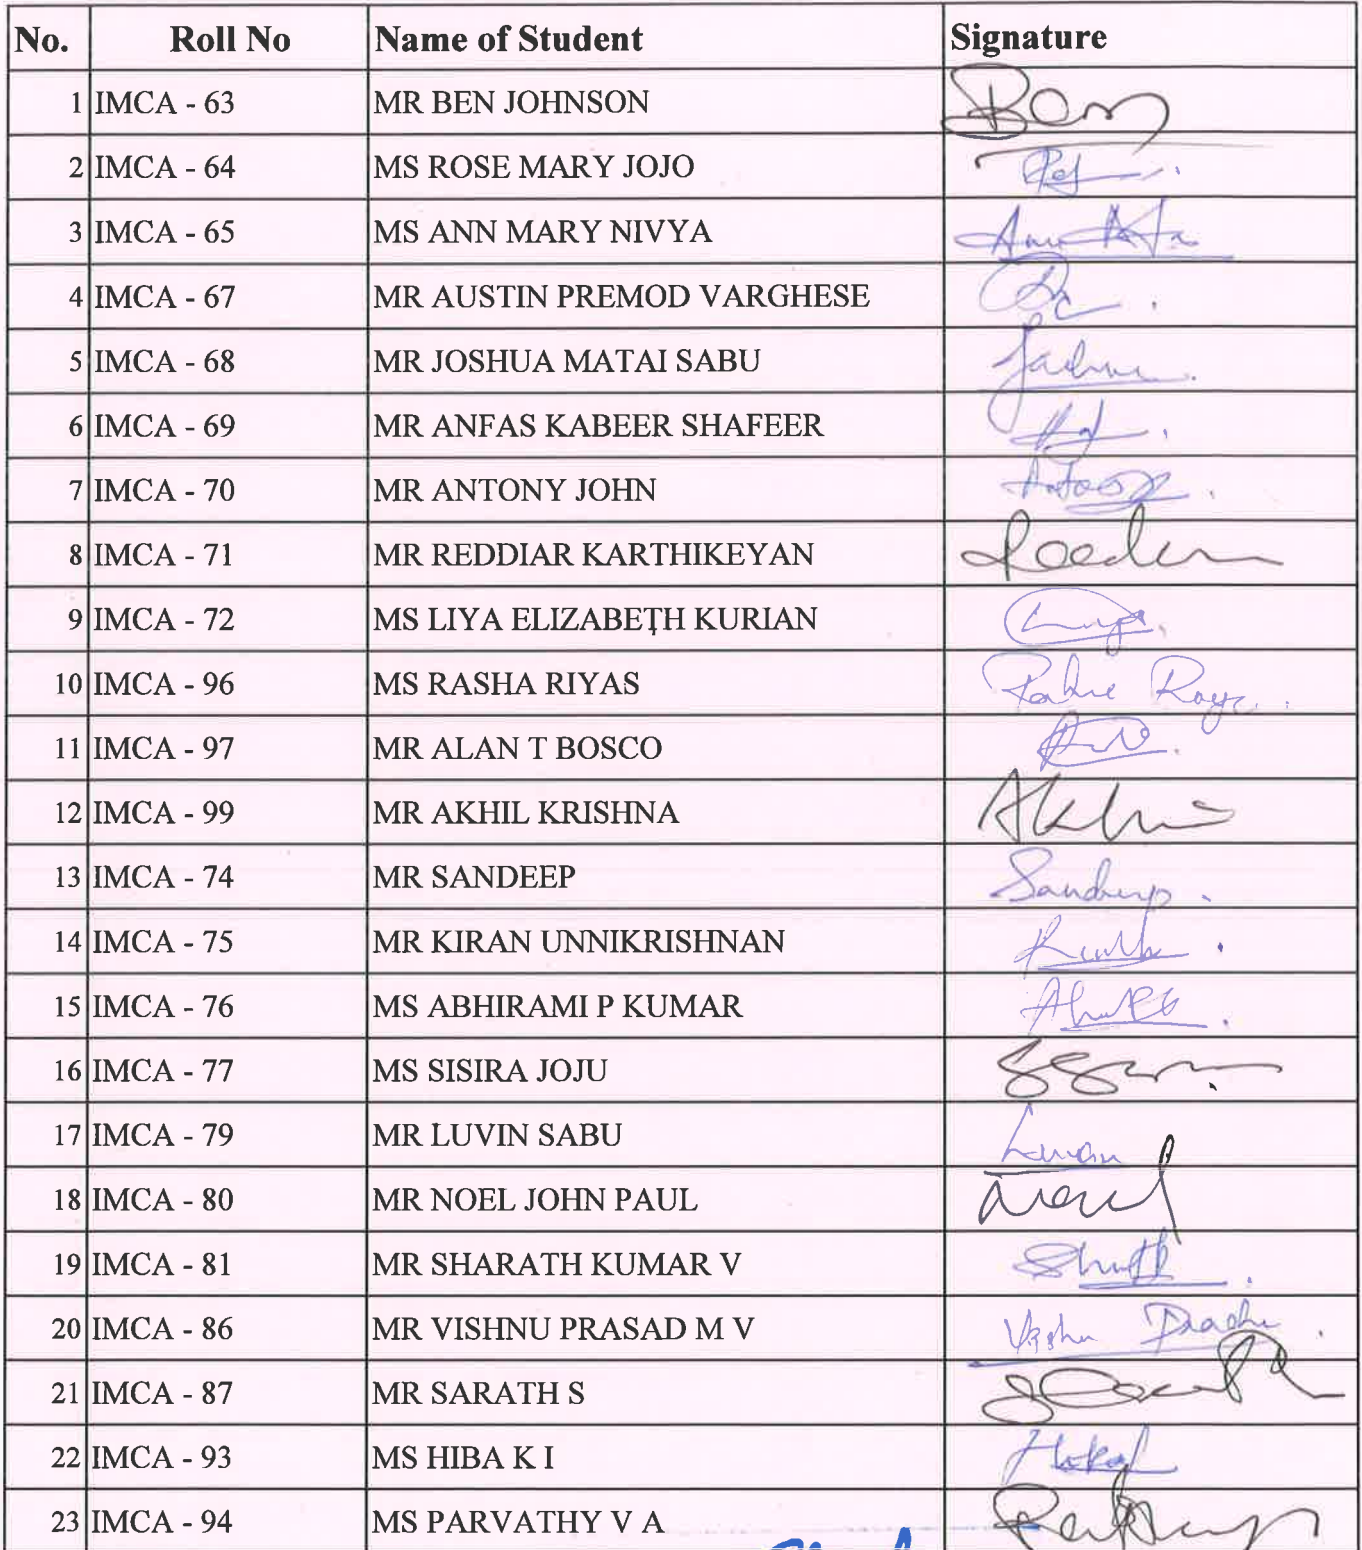 No. Roll No Name of Student Signature
1 IMCA - 63 MR BEN JOHNSON Ben
2 IMCA - 64 MS ROSE MARY JOJO
3 IMCA - 65 MS ANN MARY NIVYA
4 IMCA - 67 MR AUSTIN PREMOD VARGHESE
5 IMCA - 68 MR JOSHUA MATAI SABU
6 IMCA - 69 MR ANFAS KABEER SHAFEER
7 IMCA - 70 MR ANTONY JOHN
8 IMCA - 71 MR REDDIAR KARTHIKEYAN
9 IMCA - 72 MS LIYA ELIZABETH KURIAN
10 IMCA - 96 MS RASHA RIYAS
11 IMCA - 97 MR ALAN T BOSCO
12 IMCA - 99 MR AKHIL KRISHNA
13 IMCA - 74 MR SANDEEP Sandeep.
14 IMCA - 75 MR KIRAN UNNIKRISHNAN
15 IMCA - 76 MS ABHIRAMI P KUMAR
16 IMCA - 77 MS SISIRA JOJU
17 IMCA - 79 MR LUVIN SABU
18 IMCA - 80 MR NOEL JOHN PAUL
19 IMCA - 81 MR SHARATH KUMAR V
20 IMCA - 86 MR VISHNU PRASAD M V
21 IMCA - 87 MR SARATH S
22 IMCA - 93 MS HIBA K I
23 IMCA - 94 MS PARVATHY V A